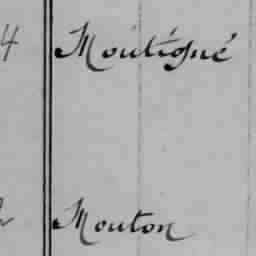 4 Moutigné
Mouton